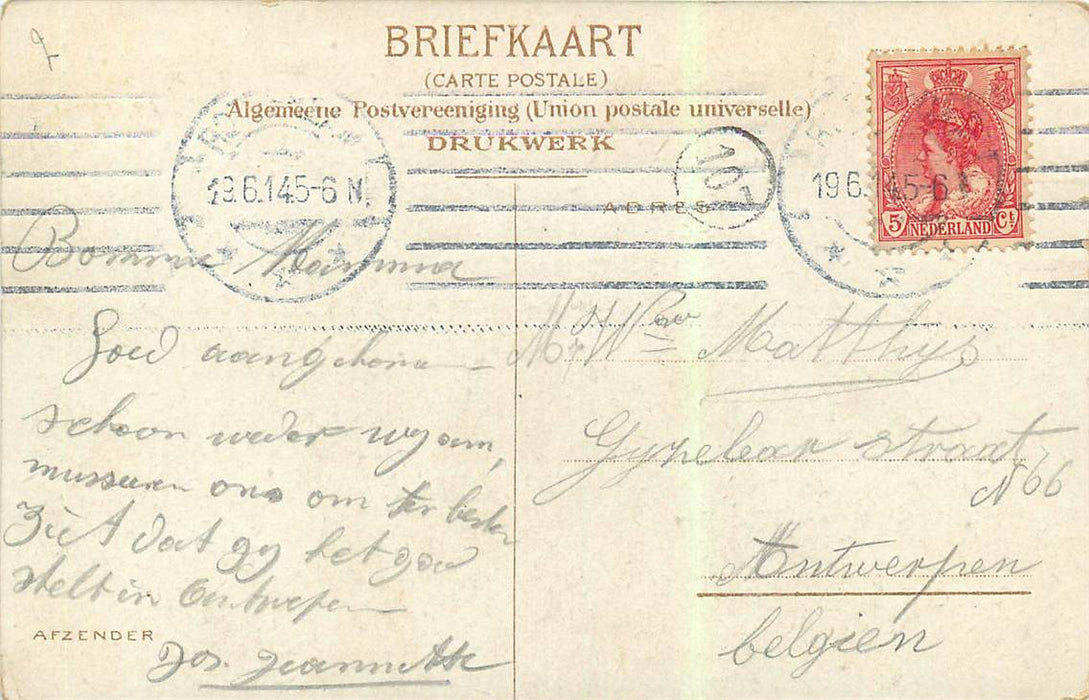 BRIEFKAART
(CARTE POSTALE)
Algemeene Postvereeniging (Union postale universelle)
DRUKWERK
ADRES
107
19.6.14 5-6 N
19.6.14 5-6 N
5 NEDERLAND Ct
Bomma Mamma
Goed aangekomen
schoon weder wy am
museeren ons om ter besten
Ziet dat gy het goed
stelt in Entwerpen
AFZENDER
Jos. Jeannette
Mr Wwe Matthys
straat
N 66
Antwerpen
belgien